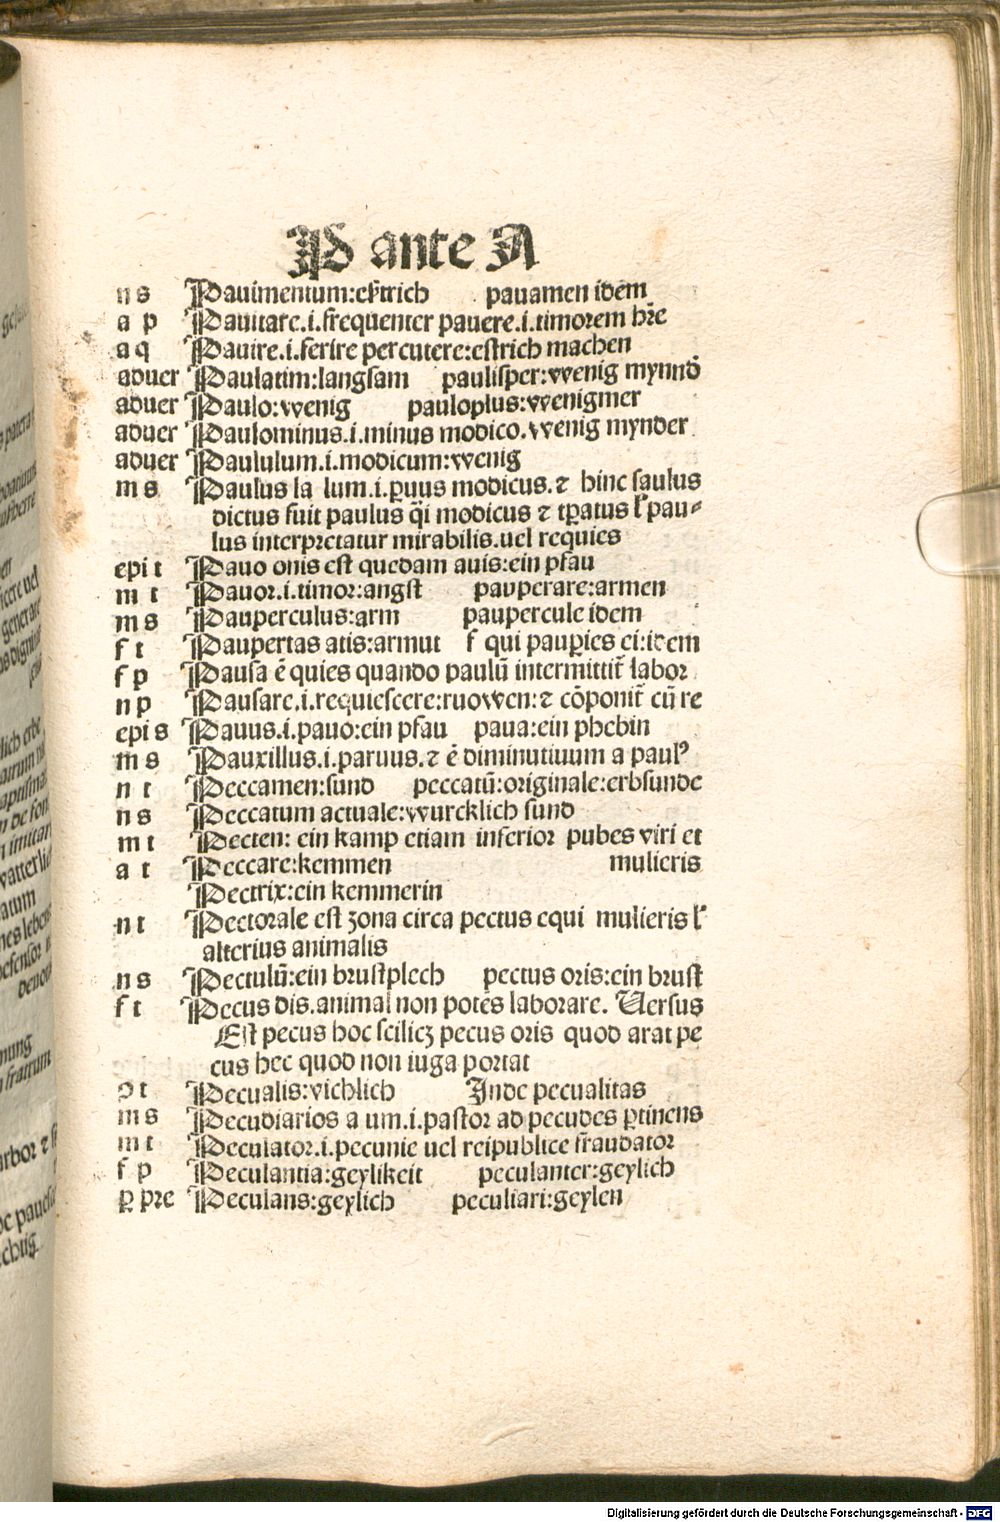 P ante A
n s Pauimentum:estrich pauamen idem
a p Pauitare.i.frequenter pauere.i.timorem hr̄e
a q Pauire.i.ferire percutere:estrich machen
aduer Paulatim:langsam paulisper:wenig mynnd̕
aduer Paulo:wenig pauloplus:wenigmer
aduer Paulominus.i.minus modico.wenig mynder
aduer Paululum.i.modicum:wenig
m s Paulus la lum.i.ꝑuus modicus.⁊ hinc saulus
dictus fuit paulus q̄i modicus ⁊ tꝑatus ł pau⸗
lus interpretatur mirabilis.uel requies
epi t Pauo onis est quedam auis:ein pfau
m t Pauor.i.timor:angst pauperare:armen
m s Pauperculus:arm paupercule idem
f t Paupertas atis:armut f qui pauꝑies ei:idem
f p Pausa ē quies quando paulū intermittit̄ labor
n p Pausare.i.requiescere:ruowen:⁊ cōponit̄ cū re
epi s Pauus.i.pauo:ein pfau paua:ein phebin
m s Pauxillus.i.paruus.⁊ ē diminutiuum a paulꝰ
n t Peccamen:sund peccatū:originale:erbsunde
n s Peccatum actuale:wurcklich sund
m t Pecten: ein kamp etiam inferior pubes viri et
a t Peccare:kemmen mulieris
Pectrix:ein kemmerin
n t Pectorale est zona circa pectus equi mulieris ł
alterius animalis
n s Pectulū:ein brustplech pectus oris:ein brust
f t Pecus dis.animal non potēs laborare. Uersus
Est pecus hoc scilicꝫ pecus oris quod arat pe
cus hec quod non iuga portat
o t Pecualis:vichlich Inde pecualitas
m s Pecudiarios a um.i.pastor ad pecudes ꝑtinens
m t Peculator.i.pecunie uel reipublice fraudator
f p Peculantia:geylikeit peculanter:geylich
ꝑ pre Peculans:geylich peculiari:geylen
Digitalisierung gefördert durch die Deutsche Forschungsgemeinschaft - DFG